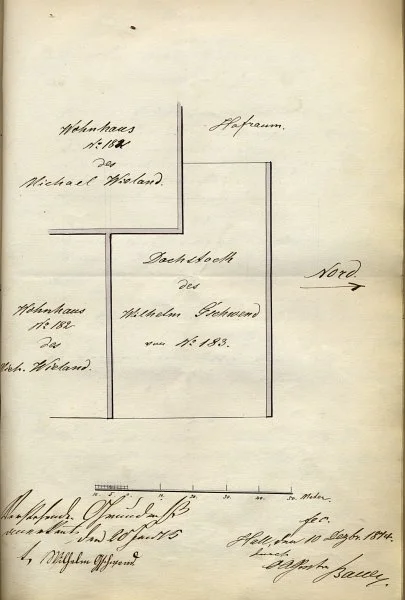 Wohnhaus
No 182
des
Michael Wieland.
Hofraum.
Dachstock
des
Wilhelm Gschwend
von No 183.
Nord.
Wohnhaus
No 182
des
Mich. Wieland.
10 5 0 10. 20. 30. 40. 50. Meter.
anerkannt, den
Wilhelm Gschwend
fec.
Hall, den 10 Dezbr. 1874.
durch